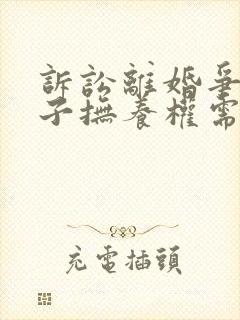 訴訟離婚爭
子撫養權需
充電插頭